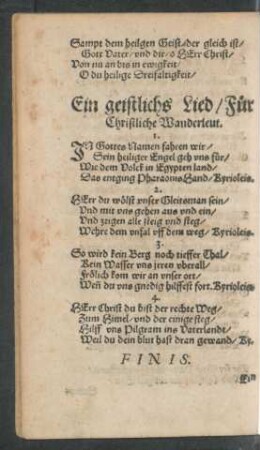 Sampt dem heilgen Geist/der gleich ist/
Gott Vater/vnd dir/o HErr Christ/
Von nu an bis in ewigkeit/
O du heilige Dreifaltigkeit/
Ein geistlichs Lied/Für
Christliche Wanderleut.
1.
IN Gottes Namen fahren wir/
Sein heiliger Engel geh vns für/
Wie dem Volck in Egypten land/
Das entgieng Pharaonis Hand/Kyrioleis.
2.
HErr du wölst vnser Gleitsman sein/
Vnd mit vns gehen aus vnd ein/
Vnd zeigen alle steig vnd steg/
Wehre dem vnfal vff dem weg/Kyrioleis.
3.
So wird kein Berg noch tieffer Thal/
Kein Wasser vns irren vberall/
Frölich kom wir an vnser ort/
Weñ du vns gnedig hilffest fort. Kyrioleis.
4.
HErr Christ du bist der rechte Weg/
Zum Himel/vnd der einige steg/
Hilff vns Pilgram ins Vaterlandt/
Weil du dein blut hast dran gewand/Ky.
FINIS.
Ein